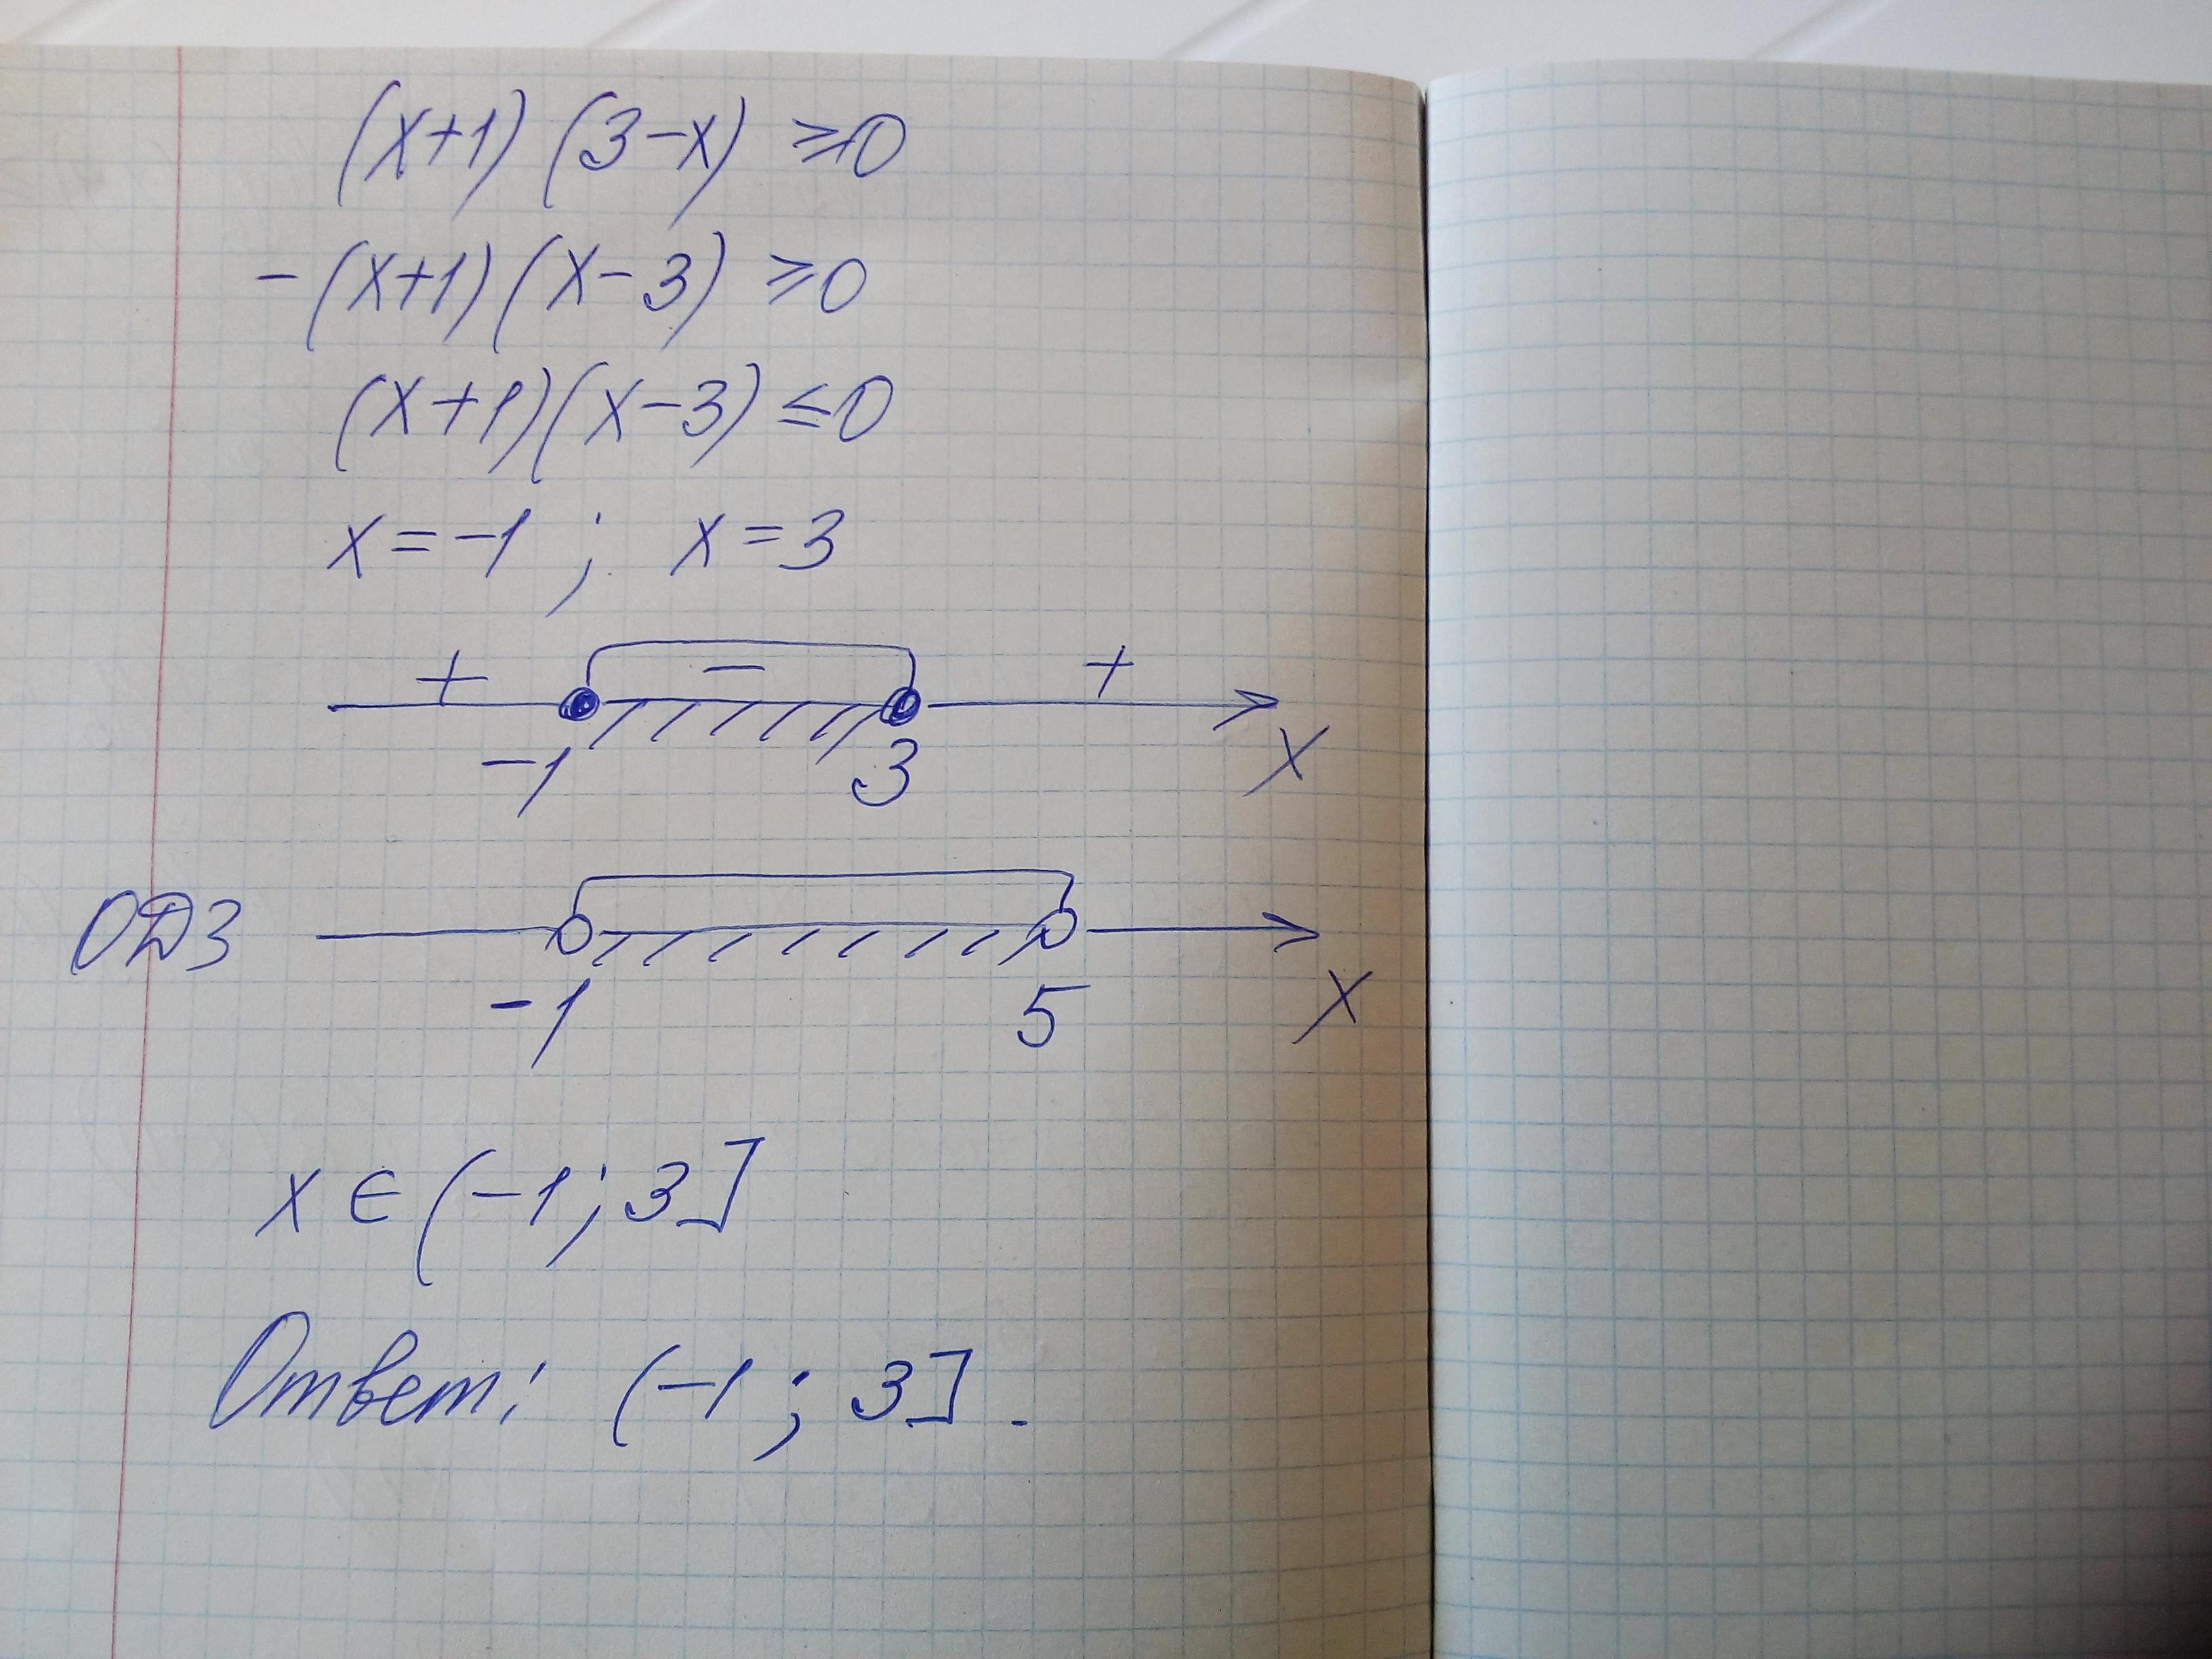 (x+1)(3-x) ≥0
-(x+1)(x-3) ≥0
(x+1)(x-3) ≤0
x=-1 ; x=3
+ - +
-1 3 x
ОДЗ
-1 5 x
x ∈ (-1; 3]
Ответ: (-1 ; 3] .